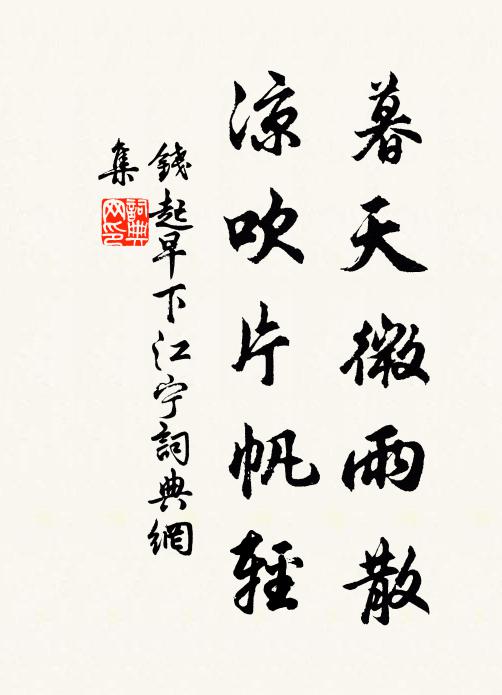 暮天微雨散
涼吹片帆輕
錢起早下江宁詞典網
集
詞典网印